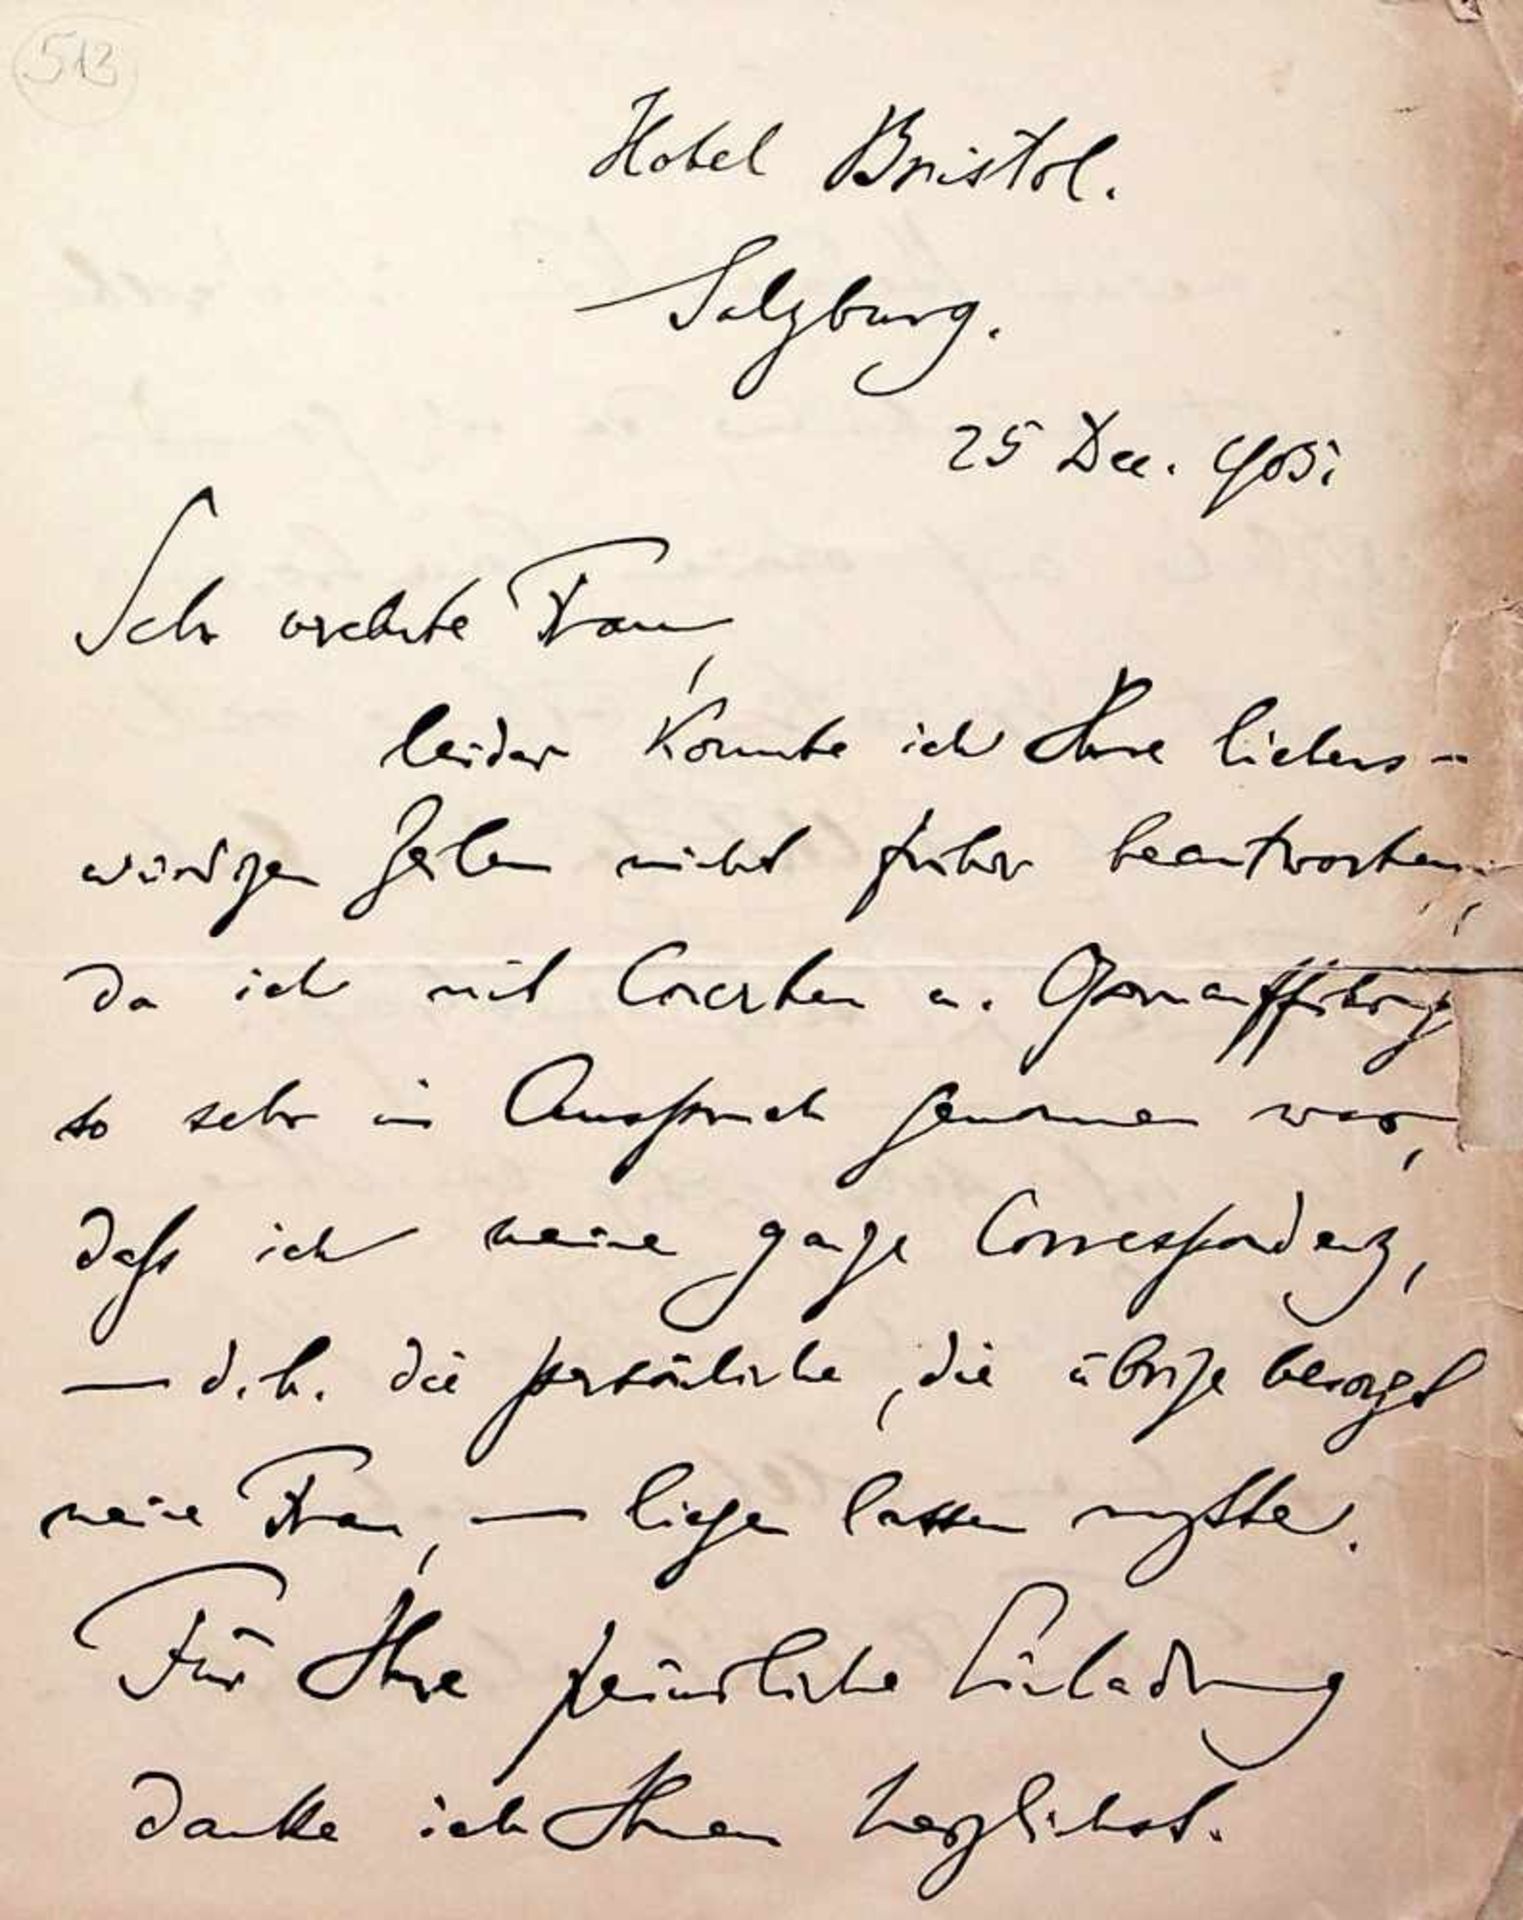 513
Hotel Bristol.
Salzburg.
25 Dec. 905.
Sehr verehrte Frau,
leider konnte ich Ihre liebens-
würdigen Zeilen nicht früher beantworten,
da ich mit Concerten u. Opernaufführung
so sehr in Anspruch genommen war,
daß ich meine ganze Correspondenz,
— d. h. die persönliche, die übrige besorgt
meine Frau, — liegen lassen mußte.
Für Ihre freundliche Einladung
danke ich Ihnen herzlichst.